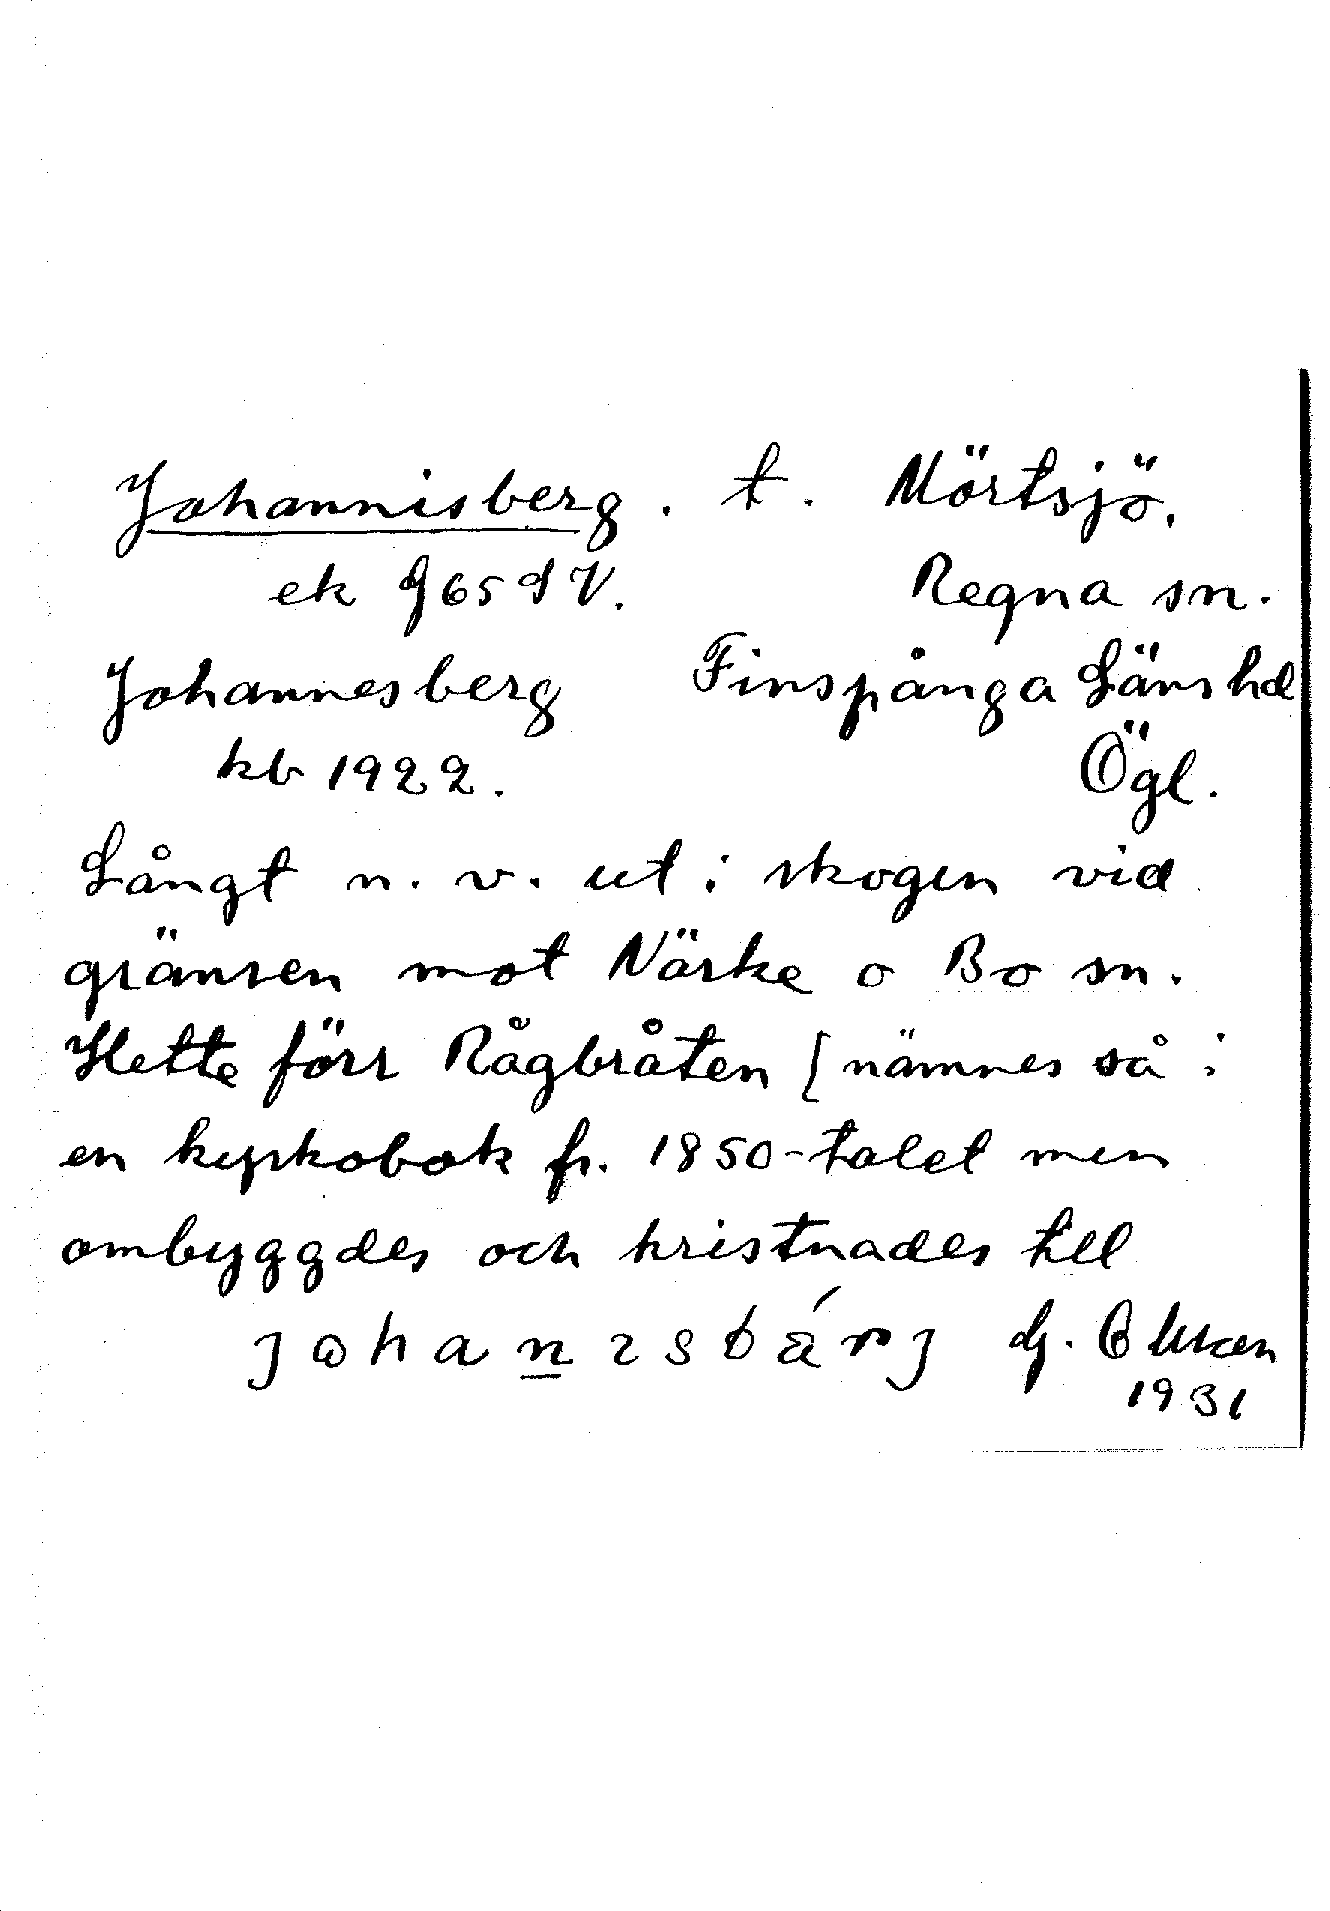 Johannisberg. t. Mörtsjö.
ek J 65 SV. Regna sn.
Johannesberg Finspånga Läns hd
kb 1922. Ögl.
Långt n. v. ut i skogen vid
gränsen mot Närke o Bo sn.
Hette förr Rågbråten [nämnes så i
en kyrkobok fr. 1850-talet men
ombyggdes och kristnades till
johanɩsbärj
1931